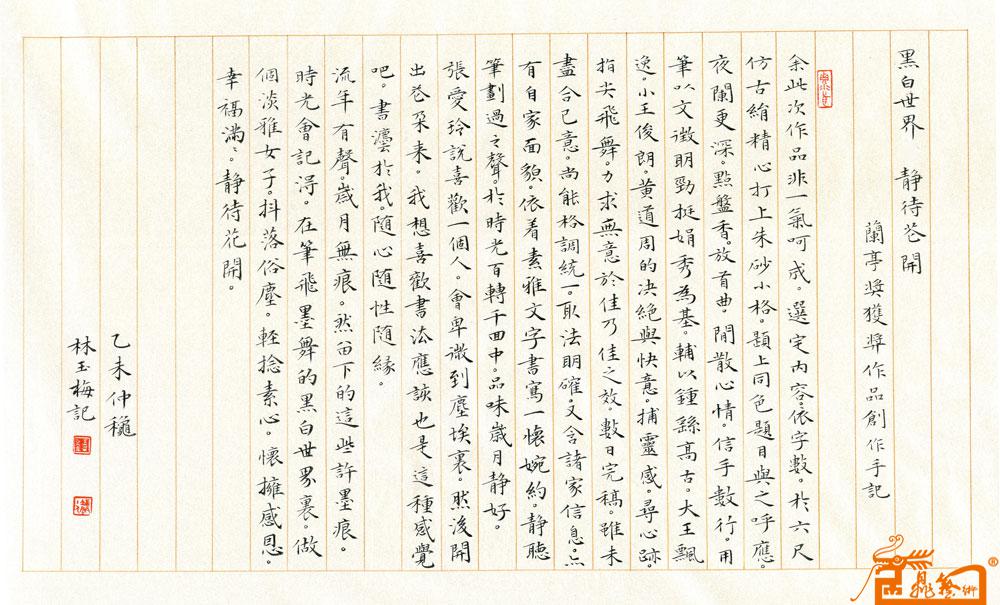 黑白世界　靜待花開
蘭亭奖獲奨作品創作手記
余此次作品非一氣呵成。選定内容。依字數。於六尺
仿古絹精心打上朱砂小格。題上同色題目與之呼應。
夜闌更深。點盤香。放首曲。閒散心情。信手數行。用
筆以文徵明勁挺娟秀為基。輔以鍾繇高古。大王飄
逸。小王俊朗。黄道周的决絶與快意。捕靈感。尋心跡。
指尖飛舞。力求無意於佳乃佳之效。數日完稿。雖未
盡合己意。尚能格調統一。取法明確。又含諸家信息。亦
有自家面貌。依着素雅文字書寫一懷婉約。静聽
筆劃過之聲。於時光百轉千回中。品味歲月静好。
張愛玲說喜歡一個人。會卑微到塵埃裏。然後開
出花朵来。我想喜歡書法應該也是這種感覺
吧。書灋於我。随心随性随緣。
流年有聲。歲月無痕。然留下的這些許墨痕。
時光會記得。在筆飛墨舞的黑白世界裏。做
個淡雅女子。抖落俗塵。輕捻素心。懷擁感恩。
幸福滿滿。静待花開。
乙未仲穐
林玉梅記